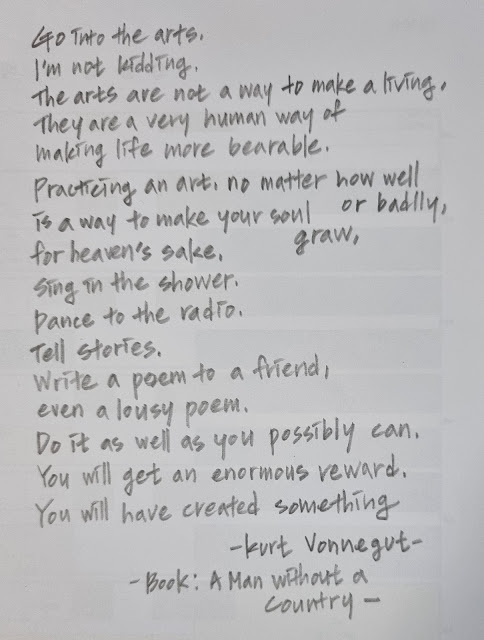 Go into the arts.
I'm not kidding.
The arts are not a way to make a living,
They are a very human way of
making life more bearable.
Practicing an art, no matter how well
or badlly,
is a way to make your soul
graw,
for heaven's sake,
Sing in the shower.
Dance to the radio.
Tell stories.
Write a poem to a friend,
even a lousy poem.
Do it as well as you possibly can.
You will get an enormous reward.
You will have created something
-Kurt Vonnegut-
-Book: A Man without a
Country-